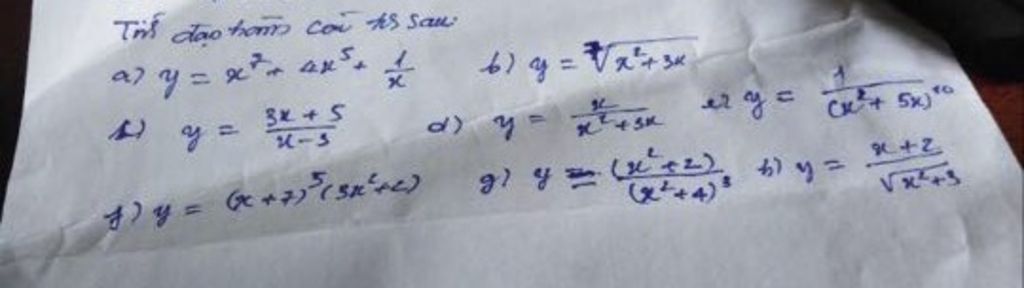 Tính đạo hàm của hs sau:
a) y = x⁷ + 4x⁵ + 1/x b) y = ⁷√(x²+3x)
c) y = (3x + 5)/(x − 3) d) y = x/(x²+3x) e) y = 1/(x²+ 5x)¹⁰
f) y = (x+7)⁵(3x²+2) g) y = (x²+2)/(x²+4)³ h) y = (x+2)/√(x²+3)